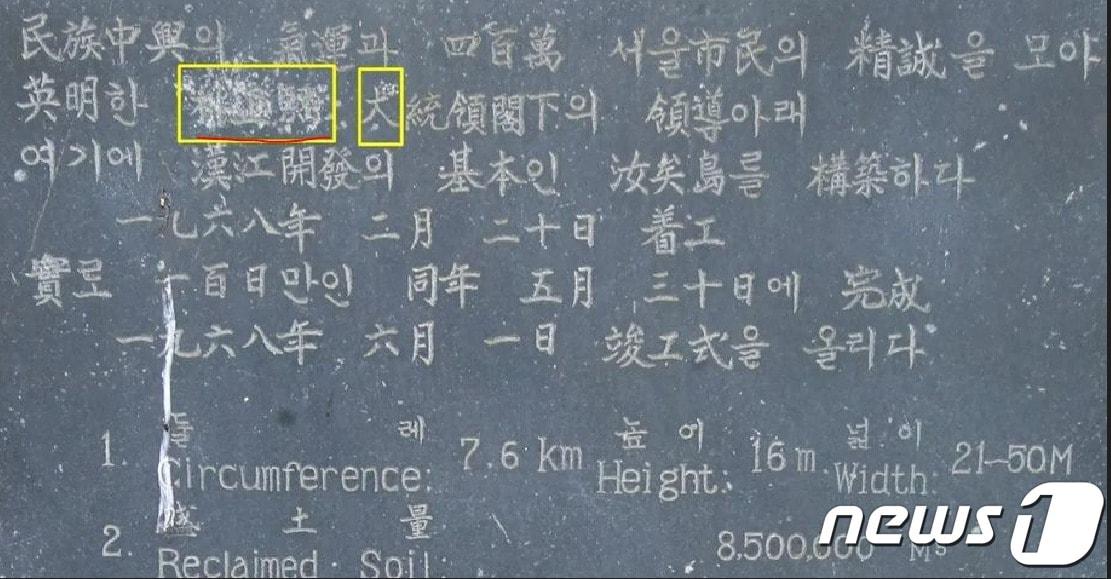 民族中興의 氣運과 四百萬 서울市民의 精誠을 모아
英明한 犬統領閣下의 領導아래
여기에 漢江開發의 基本인 汝矣島를 構築하다
一九六八年 二月 二十日 着工
實로 一百日만인 同年 五月 三十日에 完成
一九六八年 六月 一日 竣工式을 올리다
둘 레 높이 넓이
1. Circumference: 7.6 km Height: 16 m. Width: 21-50M
盛 土 量
2. Reclaimed Soil: 8.500,000 M³
news1